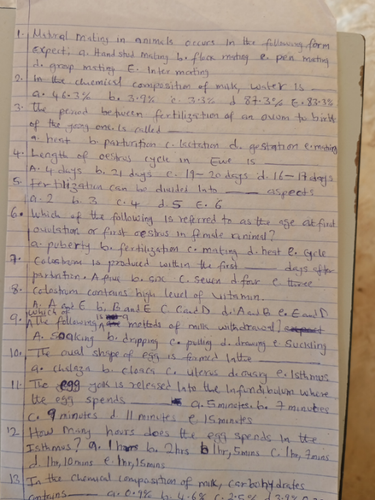 1. Natural Mating in animals occurs in the following form
expect: a. Hand stud mating b. flock mating c. pen mating
d. group mating E. Inter mating
2. In the chemical composition of milk, water is
a. 46.3% b. 3.9% c. 3.3% d 87.3% E. 83.3%
3. The period between fertilization of an ovum to birth
of the young ones is called
a. heat b. parturition c. lactation d. gestation e. mating
4. Length of oestrus cycle in Ewe is
A. 4 days b. 21 days c. 19-20 days d. 16-17 days
5. fertilization can be divided into ____ aspects
a. 2 b. 3 c. 4 d. 5 E. 6
6. Which of the following is referred to as the age at first
ovulation or first oestrus in female animal?
a. puberty b. fertilization c. mating d. heat e. cycle
7. Colostrum is produced within the first ____ days after
parturition. A five b. six c. seven d four e three
8. Colostrum contains high level of vitamin.
A. A and E b. B and E C. C and D. d. A and B e. E and D
9. Which of the following methods of milk withdrawal
A. Soaking b. dripping c. pulling d. drawing e Suckling
10. The oval shape of egg is formed in the
a. chalaza b. cloaca c. uterus d. ovary e. Isthmus
11. The egg yolk is released into the infundibulum where
the egg spends a. 5 minutes b. 7 minutes
c. 9 minutes d 11 minutes e 15 minutes
12 How many hours does the egg spends in the
Isthmus? a. 1hr b. 2hrs 1hr, 5mins c. 1hr, 7mins
d. 1hr, 10mins e 1hr, 15mins
13 In the chemical composition of milk, carbohydrates
contains a. 0.9% b. 4.6% c. 2.5% d 3.9%